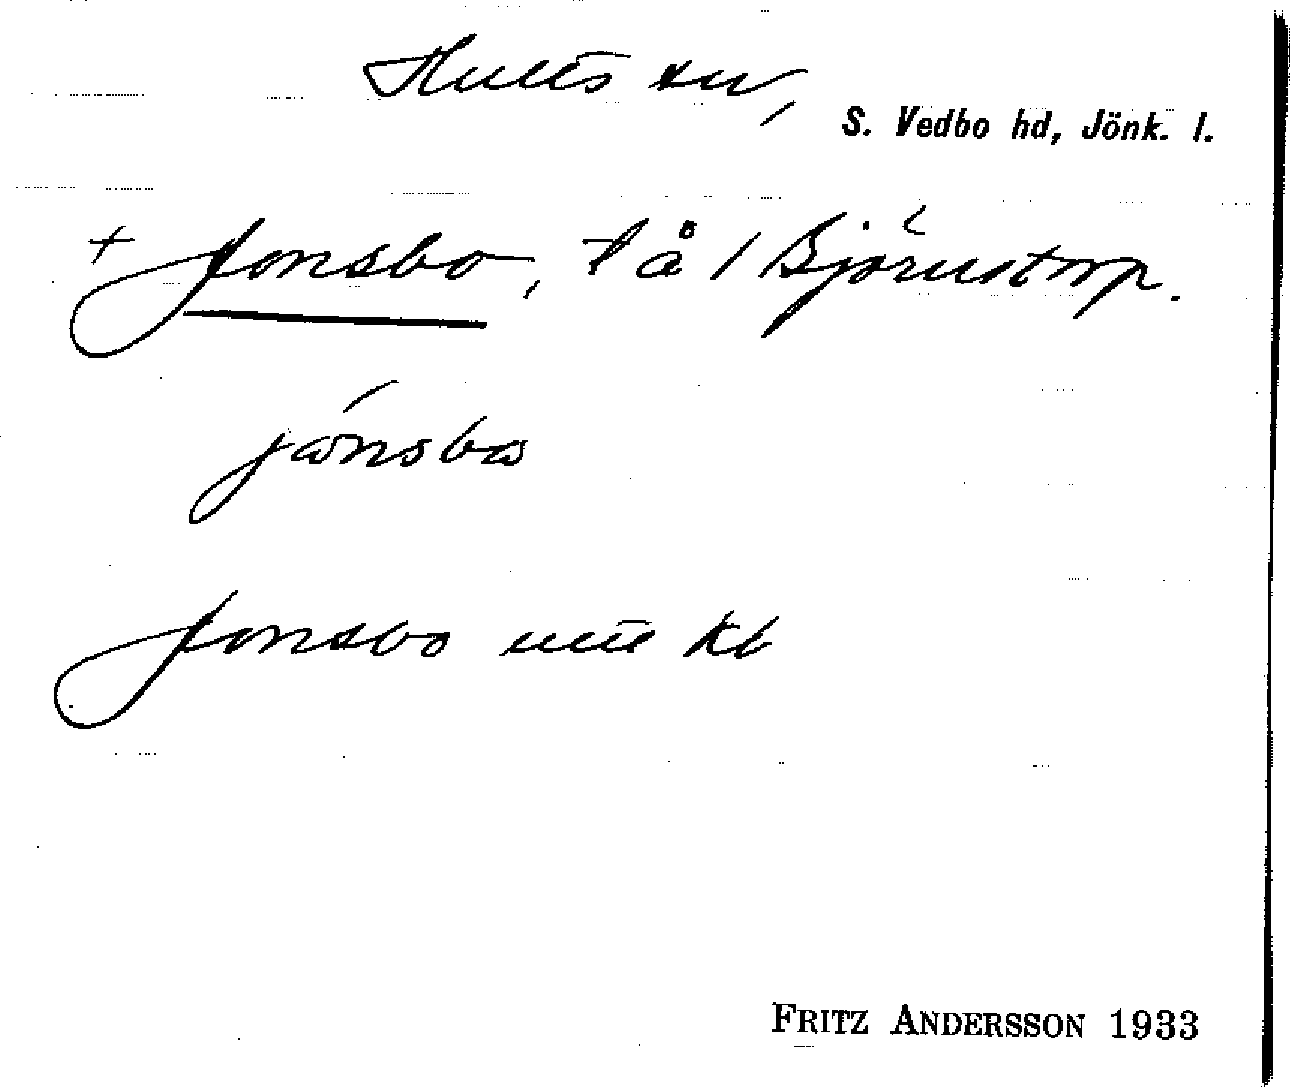 Hults sn,
S. Vedbo hd, Jönk. l.
+ Jonsbo, lå / Björnstorp.
jónsbo
Jonsbo utu Kb
FRITZ ANDERSSON 1933